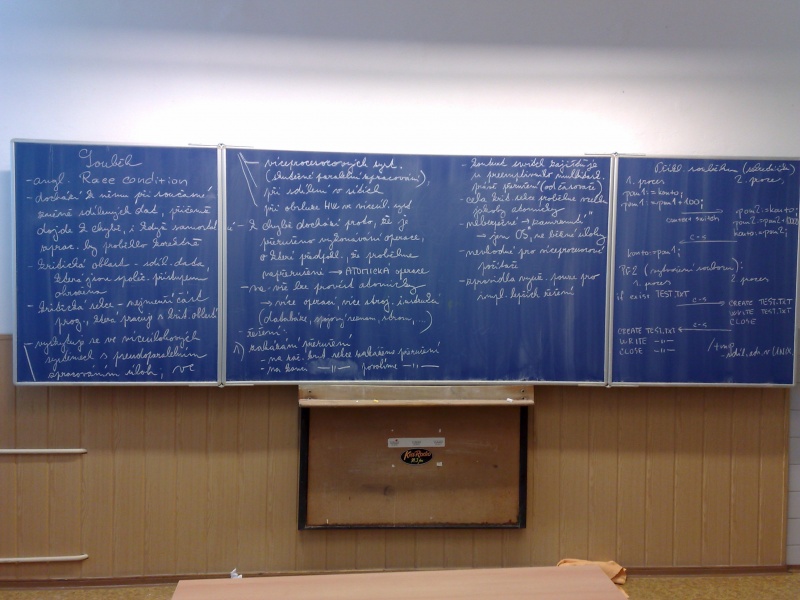 Souběh
- angl. Race condition
- dochází k němu při současné
změně sdílených dat, přičemž
dojde k chybě, i když samost
zprac. by proběhlo korektně
- kritická oblast - sdíl. data,
která jsou společ. přístupem
ohrožena
- kritická sekce - nejmenší část
prog., která pracuje s krit. oblastí
- vyskytuje se ve víceúlohových
systémech s pseudoparalelním
zpracováním úloh, ve
víceprocesorových syst.
(skutečné paralelní zpracování),
při sdílení v sítích
při obsluze HW ve víceúl. syst
- K chybě dochází proto, že je
přerušeno vykonávání operace,
o které předpokl. že proběhne
nepřerušeně → ATOMICKÁ operace
- ne vše lze provést atomicky
→ více operací, více stroj. instrukcí
(databáze, spojový seznam, strom, ...)
- Řešení:
1) zakázání přerušení
- na zač. krit. sekce zakážeme přerušení
- na konci —„— povolíme —„—
- kontext switch zajišťuje
u preemptivního multitask.
právě přerušení (od časovače)
- celá krit. sekce proběhne
jakoby atomicky
- nebezpečné →
→ jen OS, ne běžné úlohy
- nevhodné pro víceprocesorové
počítače
- zpravidla využ. pouze pro
impl. lepších řešení
Příkl. souběhu
1. proces 2. proces
pom1 := konto;
pom1 := pom1 + 100;
context switch
pom2 := konto;
pom2 := pom2 +
konto := pom2;
c-s
konto := pom1;
Př. 2 (vytvoření souboru):
1. proces 2. proces
if exist TEST.TXT
c-s
CREATE TEST.TXT
WRITE TEST.TXT
CLOSE
c-s
CREATE TEST.TXT
WRITE —„—
CLOSE —„—
/tmp
- sdíl. adr. v UNIX